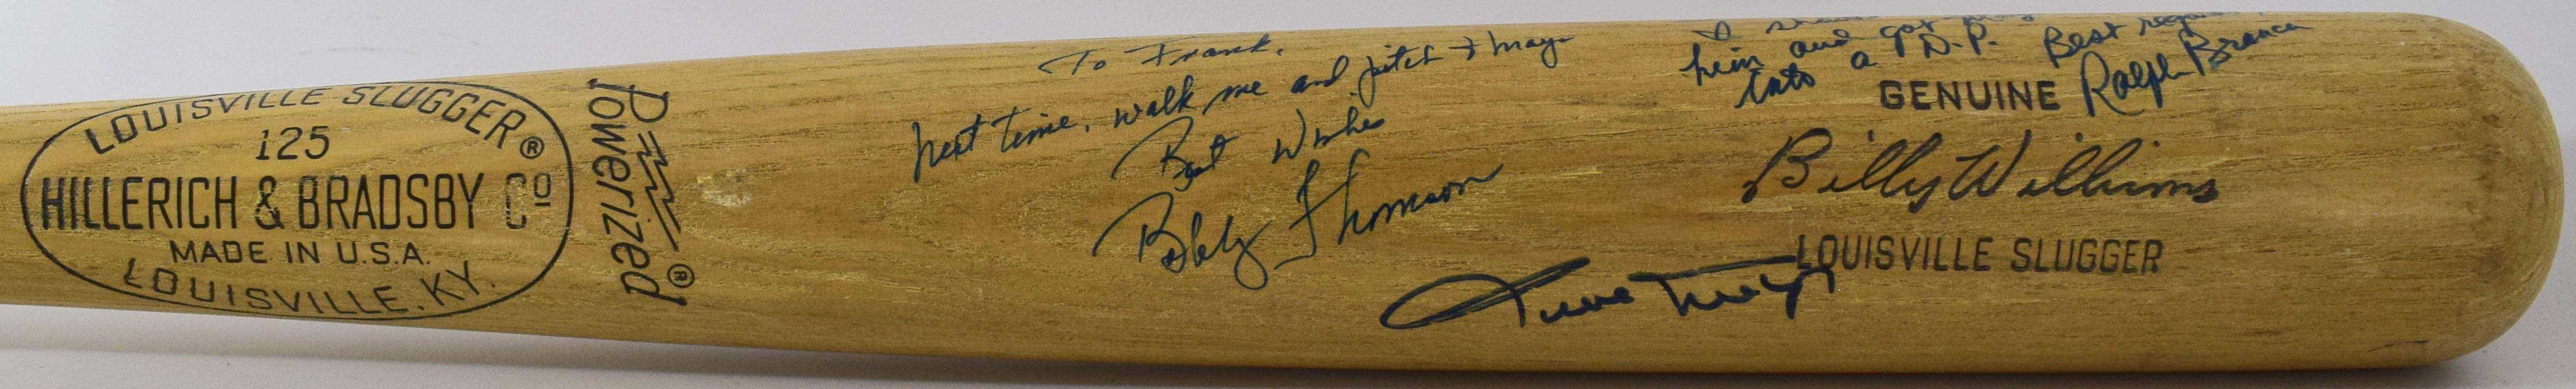 LOUISVILLE SLUGGER®
125
HILLERICH & BRADSBY Cº
MADE IN U.S.A.
LOUISVILLE, KY.
Powerized®
To Frank,
Next time, walk me and pitch to Mays
Best Wishes
Bobby Thomson
him and got Mays
into a D.P. Best regards,
Ralph Branca
GENUINE
Billy Williams
LOUISVILLE SLUGGER
Willie Mays